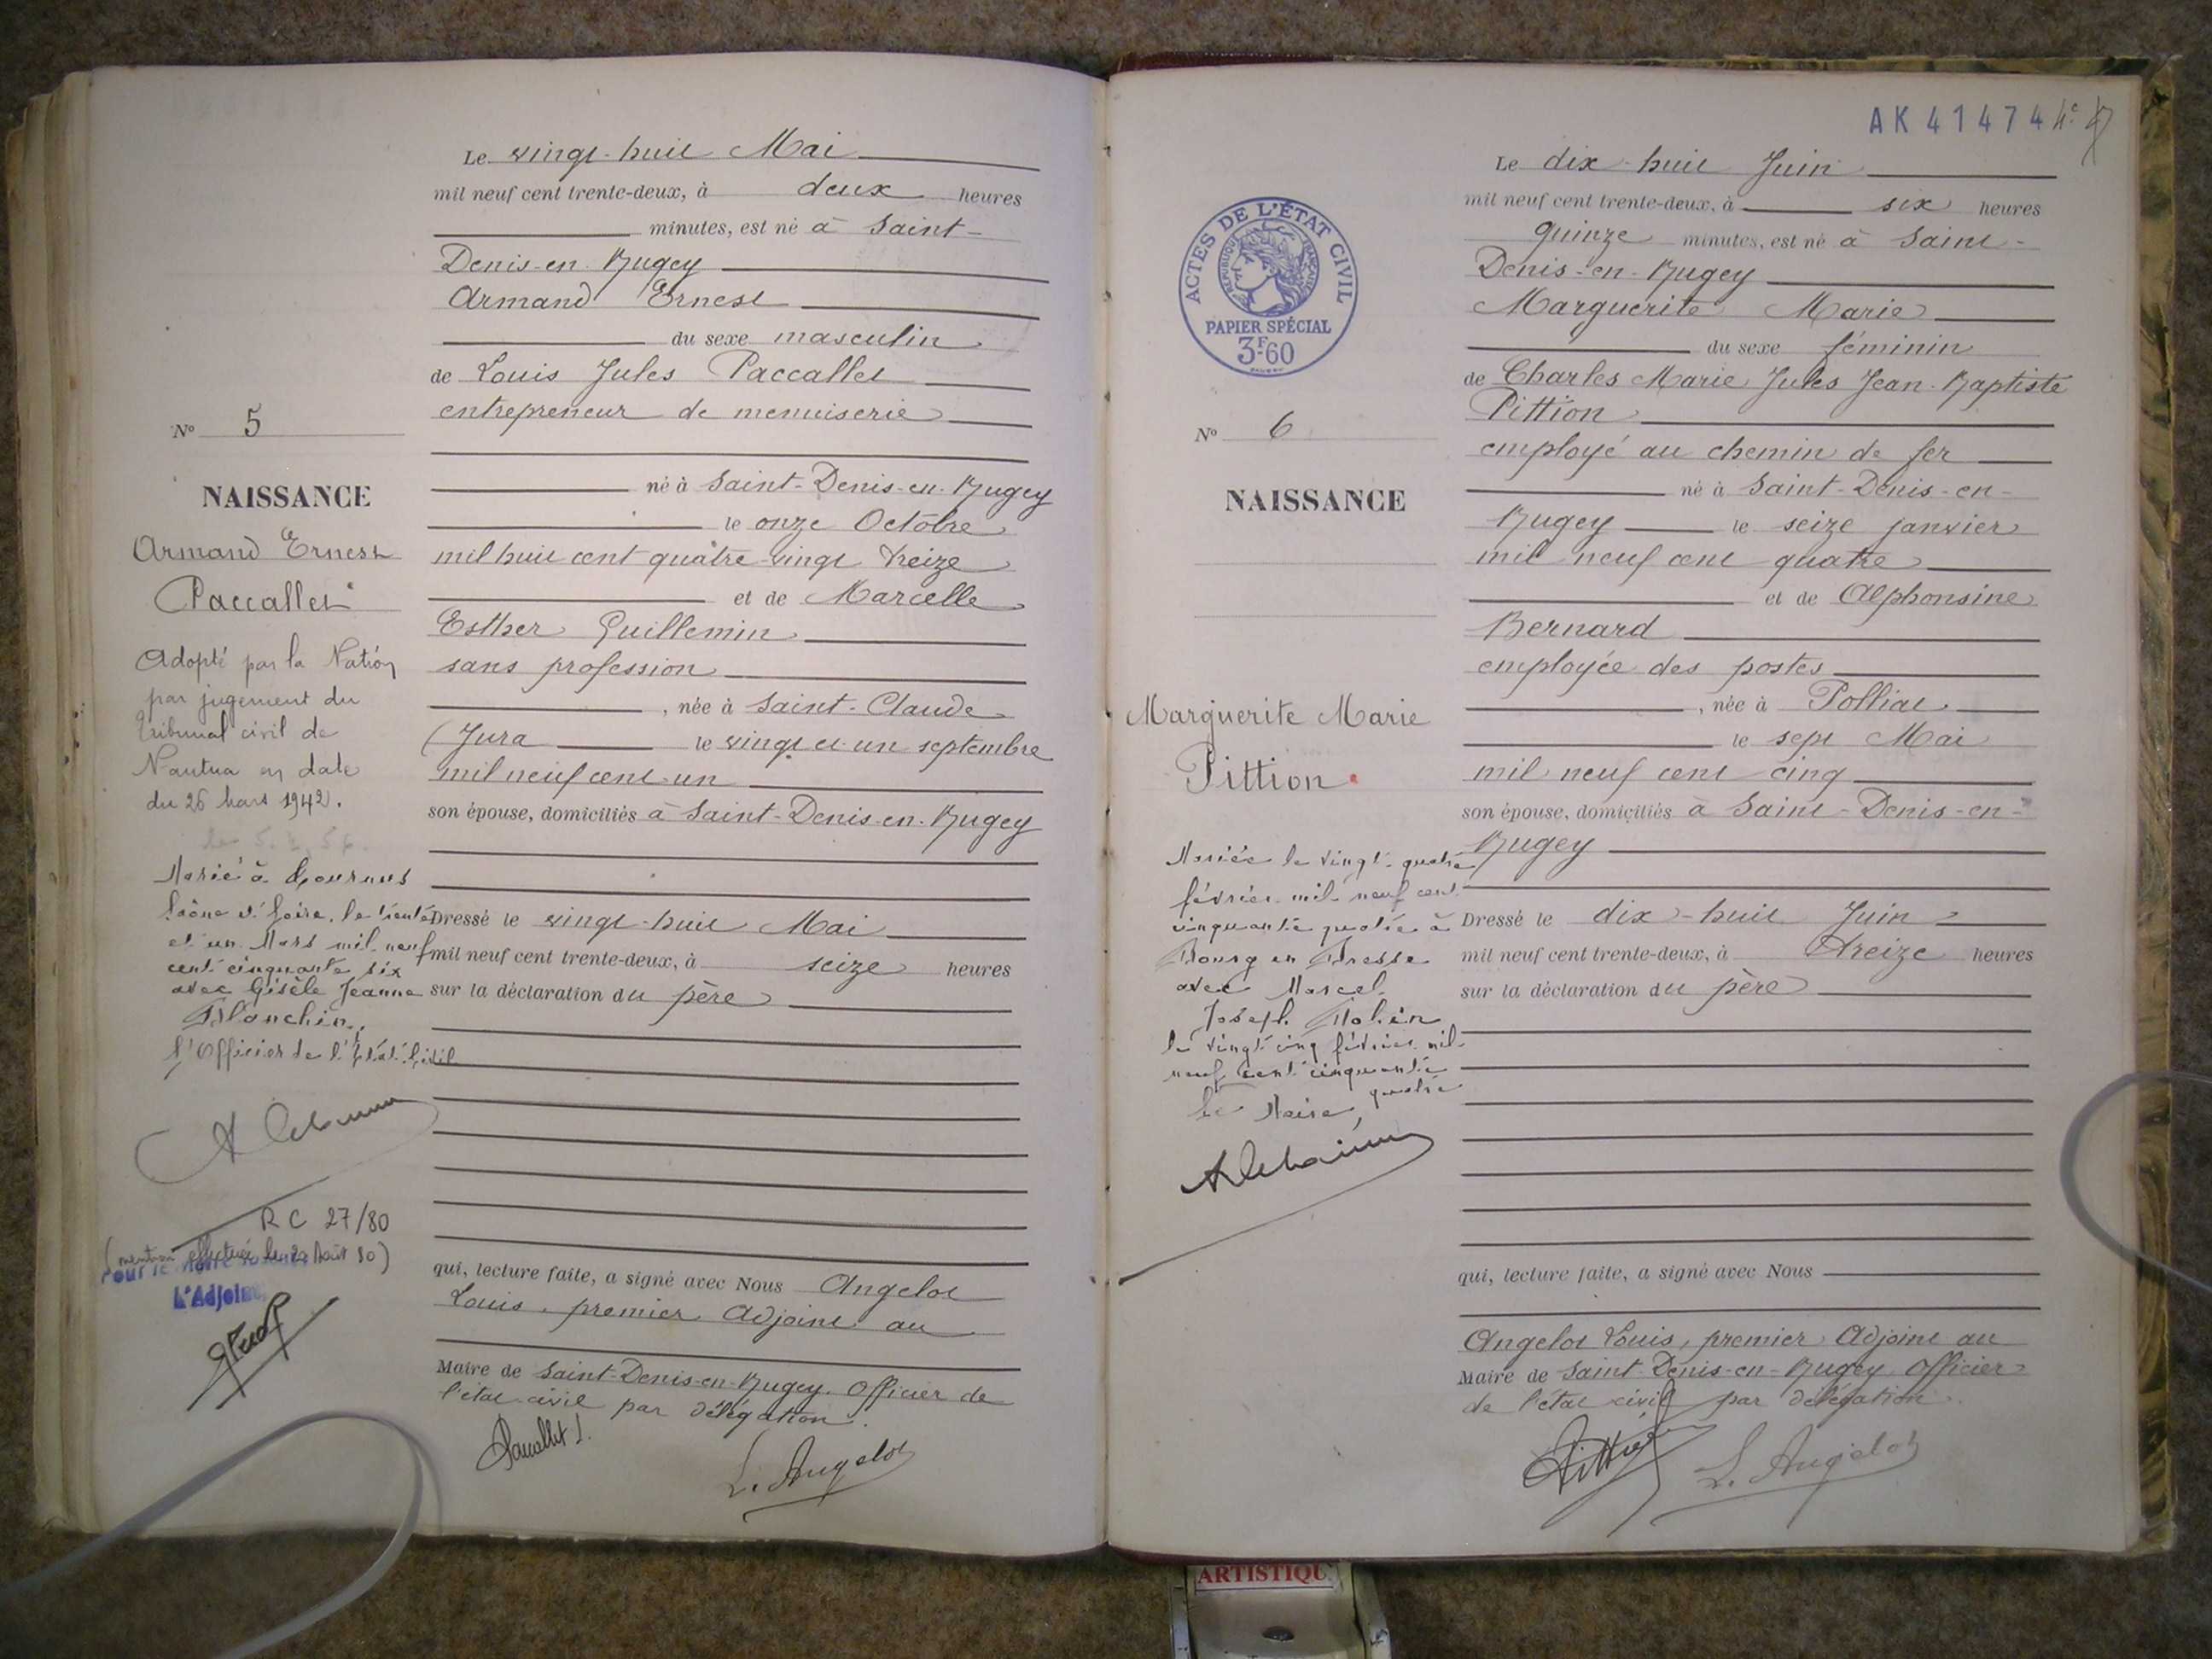 Le vingt-huit Mai
mil neuf cent trente-deux, à deux heures
minutes, est né à Saint-
Denis-en-Bugey
Armand Ernest
du sexe masculin
de Louis Jules Paccallet
entrepreneur de menuiserie
né à Saint-Denis-en-Bugey
le onze Octobre
mil huit cent quatre-vingt treize
et de Marcelle
Esther Guillemin
sans profession
, née à Saint-Claude
(Jura le vingt et un septembre
mil neuf cent un
son épouse, domiciliés à Saint-Denis-en-Bugey
Dressé le vingt-huit Mai
mil neuf cent trente-deux, à seize heures
sur la déclaration du père
qui, lecture faite, a signé avec Nous Angelot
Louis, premier Adjoint au
Maire de Saint-Denis-en-Bugey. Officier de
l'état civil par délégation.
Paccallet J.
L. Angelot
N° 5
NAISSANCE
Armand Ernest
Paccallet
Adopté par la Nation
par jugement du
tribunal civil de
Nantua en date
du 26 Mars 1942.
Marié à Tournus
Saône et Loire, le trente
et un Mars mil neuf
cent cinquante six
avec Gisèle Jeanne
Blanchin.
l'Officier de l'État-Civil
RC 27/80
(mention effectuée le Août 80)
Pour le Maire
L'Adjoint
AK 41474
Le dix-huit Juin
mil neuf cent trente-deux, à six heures
quinze minutes, est né à Saint-
Denis-en-Bugey
Marguerite Marie
du sexe féminin
de Charles Marie Jules Jean-Baptiste
Pittion
employé au chemin de fer
né à Saint-Denis-en-
Bugey le seize janvier
mil neuf cent quatre
et de Alphonsine
Bernard
employée des postes
, née à Polliat
le sept Mai
mil neuf cent cinq
son épouse, domiciliés à Saint-Denis-en-
Bugey
Dressé le dix-huit Juin
mil neuf cent trente-deux, à treize heures
sur la déclaration du père
qui, lecture faite, a signé avec Nous
Angelot Louis, premier Adjoint au
Maire de Saint-Denis-en-Bugey. Officier
de l'état civil par délégation.
Pittion
L. Angelot
ACTES DE L'ÉTAT CIVIL
RÉPUBLIQUE FRANÇAISE
PAPIER SPÉCIAL
3F60
N° 6
NAISSANCE
Marguerite Marie
Pittion
Mariée le vingt-quatre
février mil neuf cent
cinquante quatre à
Bourg en Bresse
avec Marcel
Joseph
le vingt cinq février mil
neuf cent cinquante
quatre
Le Maire,
ARTISTIQU